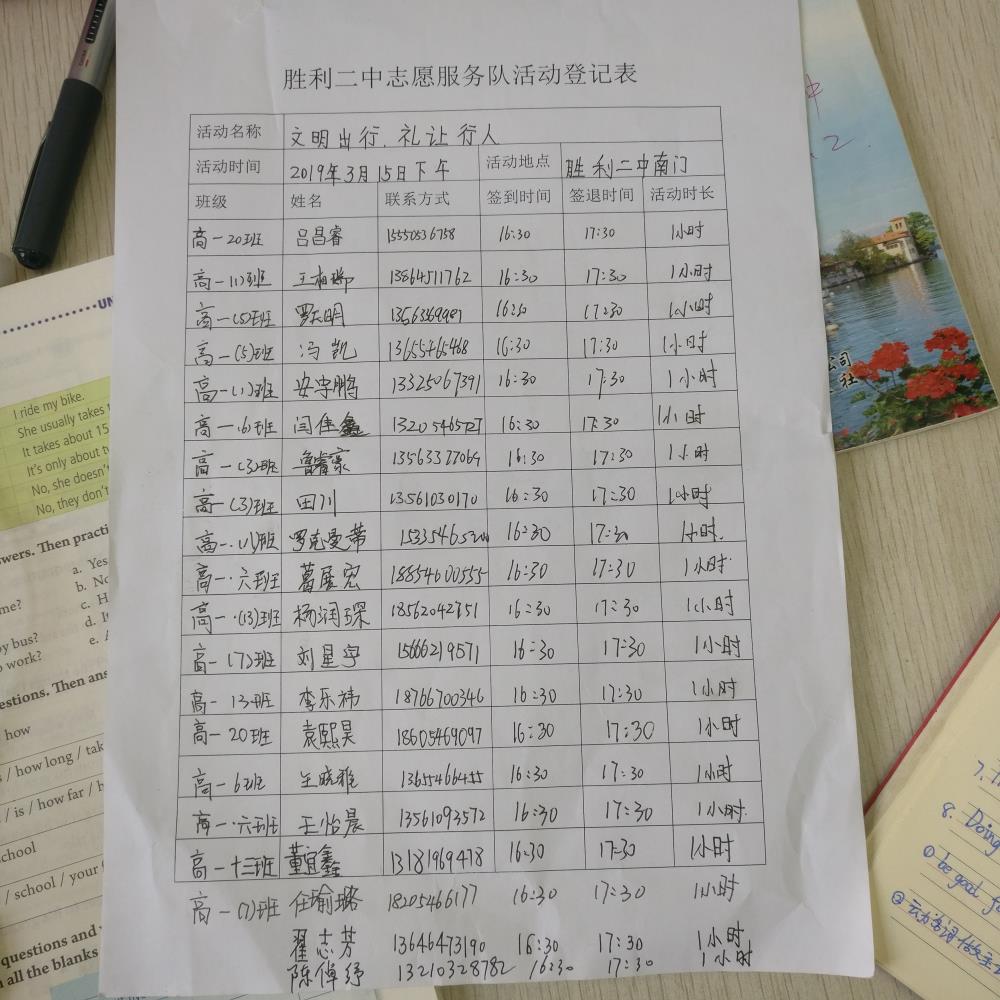 胜利二中志愿服务队活动登记表
活动名称 文明出行.礼让行人
活动时间 2019年3月15日下午 活动地点 胜利二中南门
班级 姓名 联系方式 签到时间 签退时间 活动时长
高一20班 吕昌睿 15550536758 16:30 17:30 1小时
高一(1)班 13864511762 16:30 17:30 1小时
高一(5)班 17:30 1小时
高一(5)班 冯凯 13655465468 16:30 17:30 1小时
高一(1)班 安宇鹏 13325067391 16:30 17:30 1小时
高一.(6)班 闫佳鑫 16:30 17:30 1小时
高一(3)班 16:30 17:30 1小时
高一(3)班 田川 13561030170 16:30 17:30 1小时
罗克曼蒂 16:30 1小时.
高一.六班 葛展宏 18854600555 16:30 17:30 1小时.
高一.(13)班 杨润琛 16:30 17:30 1小时
高一(7)班 刘星宇 15666219571 16:30 17:30 1小时
高一13班 李乐祎 18766700346 16:30 17:30 1小时
高一20班 袁熙昊 18605469097 16:30 17:30 1小时
高一6班 王晓雅 13655466455 16:30 17:30 1小时
高一.六班 王怡晨 13561093572 16:30 17:30 1小时.
高一十三班 董宜鑫 13181969478 16:30 17:30 1小时
高一(7)班 任瑜璐 18205466177 16:30 17:30 1小时
翟志芳 13646473190 16:30 17:30 1小时
陈倬纾 13210328782 16:30 17:30 1小时
UN
I ride my bike.
She usually takes
It takes about 15
It's only about
No, she doesn'
No, they don't
swers. Then practi
a. Yes
b. No
me? c. H
d. It
by bus? e. A
o work?
estions. Then ans
how
/ how long / tak
/ is / how far / h
school
/ school / your
questions and
n all the blanks
中
2.
公司
社
7.
8. Doing
① be good f